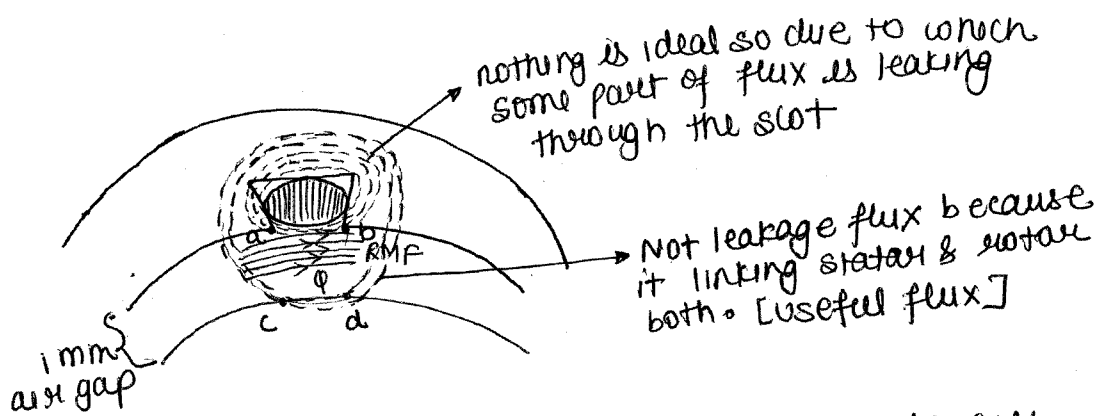 nothing is ideal so due to which
some part of flux is leaking
through the slot
a
b
RMF
φ
Not leakage flux because
it linking stator & rotor
both. [useful flux]
c
d
1 mm
air gap